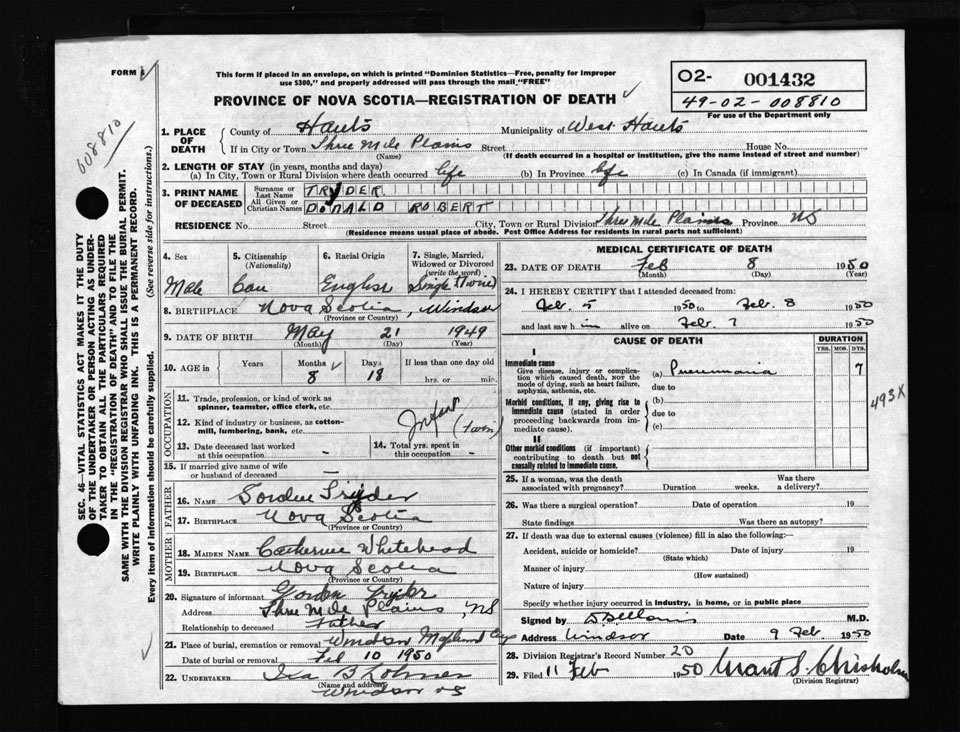 FORM 6
This form if placed in an envelope, on which is printed "Dominion Statistics—Free, penalty for improper
use $300," and properly addressed will pass through the mail "FREE"
PROVINCE OF NOVA SCOTIA—REGISTRATION OF DEATH
02- 001432
49-02-008810
For use of the Department only
008810
SEC. 46—VITAL STATISTICS ACT MAKES IT THE DUTY
OF THE UNDERTAKER OR PERSON ACTING AS UNDER-
TAKER TO OBTAIN ALL THE PARTICULARS REQUIRED
IN THE "REGISTRATION OF DEATH" AND TO FILE THE
SAME WITH THE DIVISION REGISTRAR WHO SHALL ISSUE THE BURIAL PERMIT.
WRITE PLAINLY WITH UNFADING INK. THIS IS A PERMANENT RECORD.
Every item of information should be carefully supplied. (See reverse side for instructions.)
1. PLACE OF DEATH
County of Hants Municipality of West Hants
If in City or Town Three Mile Plains Street House No.
(Name) (If death occurred in a hospital or institution, give the name instead of street and number)
2. LENGTH OF STAY (in years, months and days)
(a) In City, Town or Rural Division where death occurred life (b) In Province life (c) In Canada (if immigrant)
3. PRINT NAME OF DECEASED
Surname or Last Name TRYDER
All Given or Christian Names DONALD ROBERT
RESIDENCE No. Street City, Town or Rural Division Three Mile Plains Province NS
(Residence means usual place of abode. Post Office Address for residents in rural parts not sufficient)
4. Sex Male
5. Citizenship (Nationality) Can
6. Racial Origin English
7. Single, Married, Widowed or Divorced (write the word) Single (Twin)
8. BIRTHPLACE Nova Scotia, Windsor
(Province or Country)
9. DATE OF BIRTH May 21 1949
(Month) (Day) (Year)
10. AGE in Years Months 8 Days 18 If less than one day old hrs. or min.
OCCUPATION
11. Trade, profession, or kind of work as spinner, teamster, office clerk, etc.
12. Kind of industry or business, as cotton-mill, lumbering, bank, etc.
Infant (Twin)
13. Date deceased last worked at this occupation —
14. Total yrs. spent in this occupation —
15. If married give name of wife or husband of deceased —
FATHER
16. NAME Gordon Tryder
17. BIRTHPLACE Nova Scotia
(Province or Country)
MOTHER
18. MAIDEN NAME Catherine Whitehead
19. BIRTHPLACE Nova Scotia
(Province or Country)
20. Signature of informant Gordon Tryder
Address Three Mile Plains, NS
Relationship to deceased Father
21. Place of burial, cremation or removal Windsor
Date of burial or removal Feb 10 1950
22. UNDERTAKER Ira B
(Name and address)
Windsor NS
MEDICAL CERTIFICATE OF DEATH
23. DATE OF DEATH Feb 8 1950
(Month) (Day)
24. I HEREBY CERTIFY that I attended deceased from:
Feb. 5 1950 to Feb. 8 1950
and last saw him alive on Feb. 7 1950
CAUSE OF DEATH DURATION
YRS. MOS. DYS.
I
Immediate cause
Give disease, injury or complication which caused death, NOT the mode of dying, such as heart failure, asphyxia, asthenia, etc.
(a) Pneumonia 7
due to
Morbid conditions, if any, giving rise to immediate cause (stated in order proceeding backwards from immediate cause).
(b)
due to
(c)
493X
II
Other morbid conditions (if important) contributing to death but not causally related to immediate cause.
25. If a woman, was the death associated with pregnancy? Duration weeks. Was there a delivery?
26. Was there a surgical operation? Date of operation 19
State findings Was there an autopsy?
27. If death was due to external causes (violence) fill in also the following:—
Accident, suicide or homicide? Date of injury 19
(State which)
Manner of injury
(How sustained)
Nature of injury
Specify whether injury occurred in industry, in home, or in public place
Signed by M.D.
Address Windsor Date 9 Feb. 1950
28. Division Registrar's Record Number 20
29. Filed 11 Feb 1950 Grant S. Chisholm
(Division Registrar)